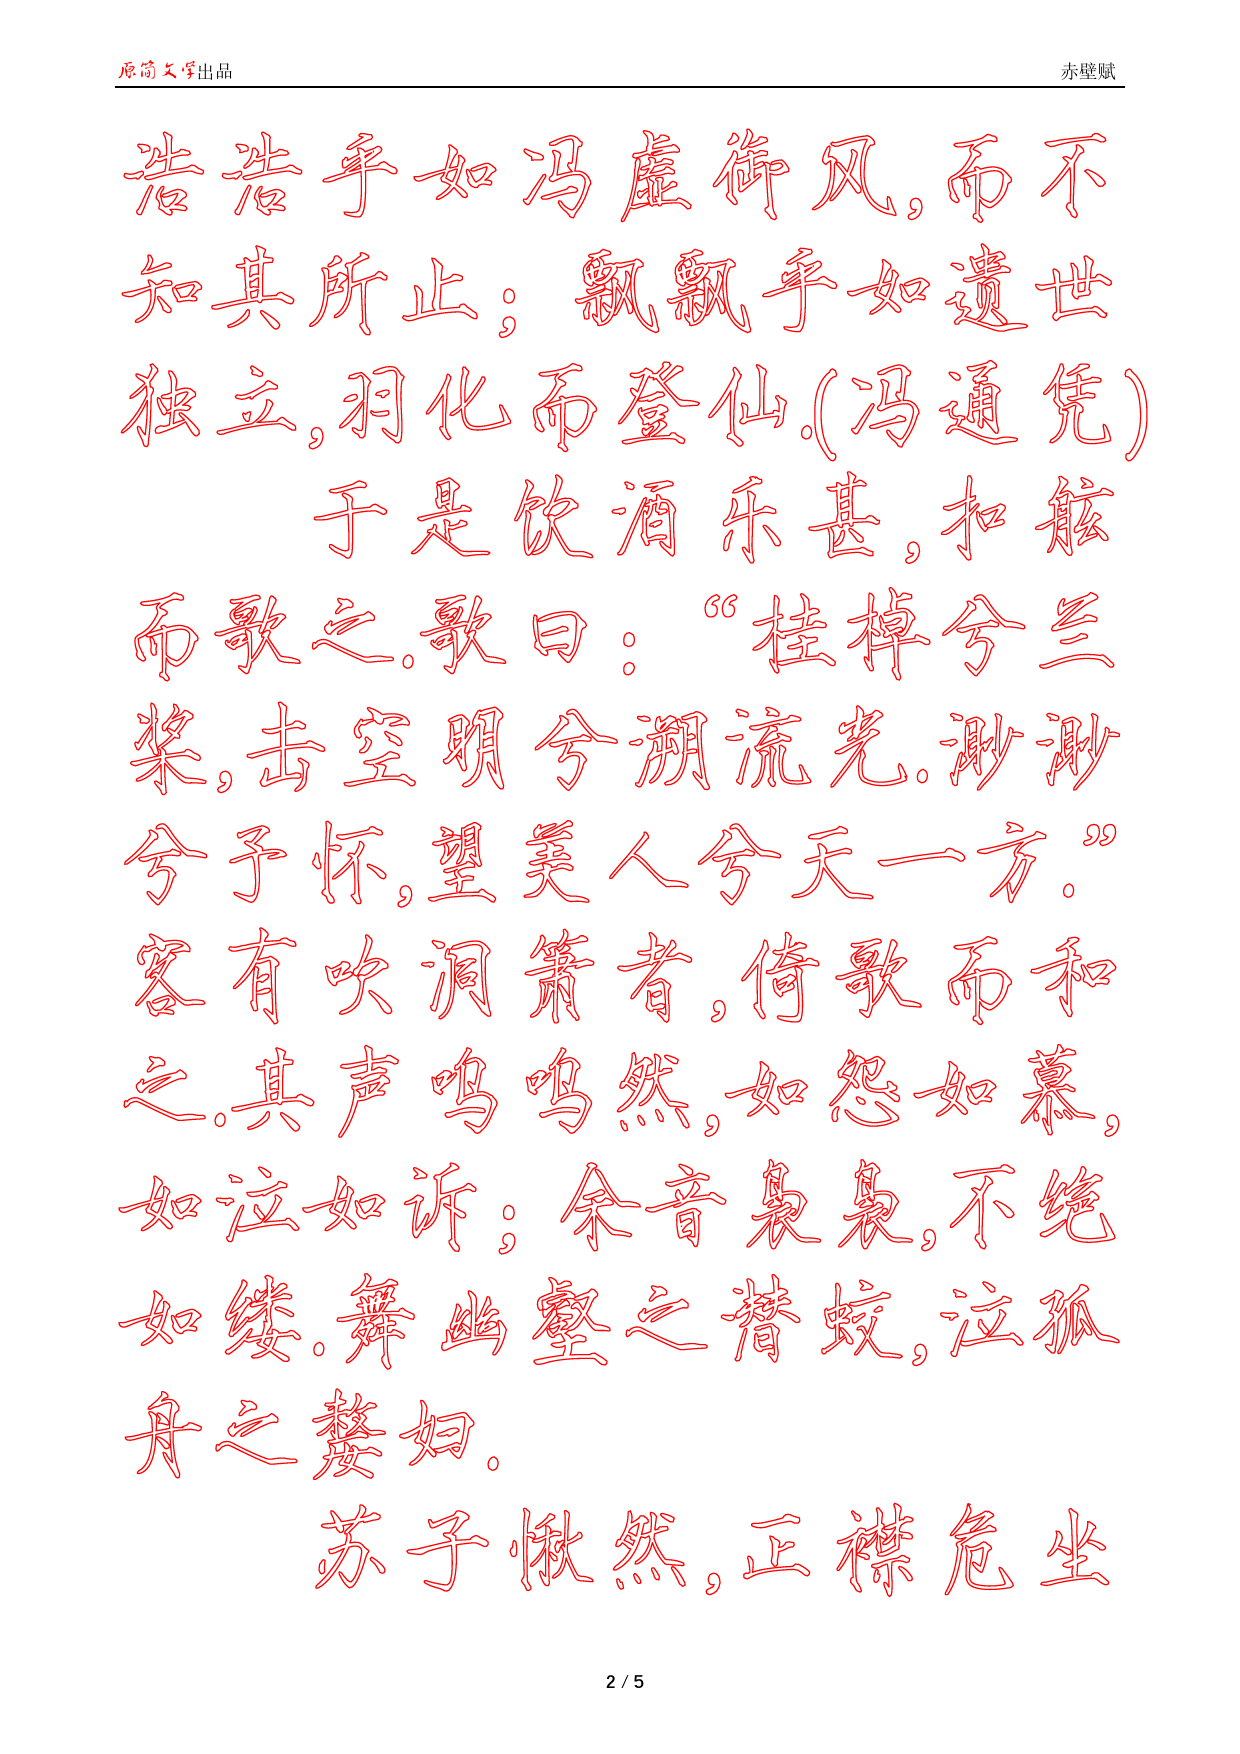 原简文学出品 赤壁赋
浩浩乎如冯虚御风,而不
知其所止; 飘飘乎如遗世
独立,羽化而登仙.(冯通凭)
于是饮酒乐甚,扣舷
而歌之.歌曰: “桂棹兮兰
桨,击空明兮溯流光.渺渺
兮予怀,望美人兮天一方.”
客有吹洞箫者,倚歌而和
之.其声呜呜然,如怨如慕,
如泣如诉; 余音袅袅,不绝
如缕.舞幽壑之潜蛟,泣孤
舟之嫠妇.
苏子愀然,正襟危坐
2 / 5